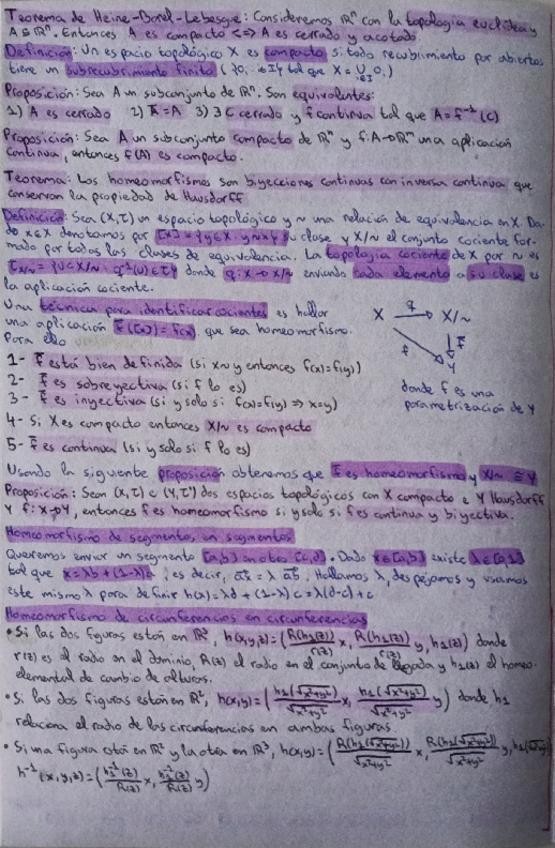 Teorema de Heine-Borel-Lebesgue: Consideremos ℝⁿ con la topología euclídea y
A⊆ℝⁿ. Entonces A es compacto <=> A es cerrado y acotado.
Definición: Un espacio topológico X es compacto si todo recubrimiento por abiertos
tiene un subrecubrimiento finito ({Oᵢ : i∈I} tal que X = ∪ Oᵢ)
i∈I
Proposición: Sea A un subconjunto de ℝⁿ. Son equivalentes:
1) A es cerrado 2) Ā=A 3) ∃ C cerrado y f continua tal que A=f⁻¹(C)
Proposición: Sea A un subconjunto compacto de ℝⁿ y f:A→ℝᵐ una aplicación
continua, entonces f(A) es compacto.
Teorema: Los homeomorfismos son biyecciones continuas con inversa continua que
conservan la propiedad de Hausdorff
Definición: Sea (X,τ) un espacio topológico y ~ una relación de equivalencia en X. Da-
do x∈X denotamos por [x]={y∈X : y~x} su clase y X/~ el conjunto cociente for-
mado por todas las clases de equivalencia. La topología cociente de X por ~ es
τx/~ = {U⊂X/~ : q⁻¹(U)∈τ} donde q: X→X/~ enviando cada elemento a su clase es
la aplicación cociente.
Una técnica para identificar cocientes es hallar
una aplicación f̄([x])=f(x), que sea homeomorfismo.
Para ello
X q X/~
f f̄
Y
1- f̄ está bien definida (si x~y entonces f(x)=f(y))
2- f̄ es sobreyectiva (si f lo es)
3- f̄ es inyectiva (si y solo si f(x)=f(y) => x~y)
4- Si X es compacto entonces X/~ es compacto
5- f̄ es continua (si y solo si f lo es)
donde f es una
parametrización de Y
Usando la siguiente proposición obtenemos que f̄ es homeomorfismo y X/~ ≅ Y
Proposición: Sean (X,τ) e (Y,τ') dos espacios topológicos con X compacto e Y Hausdorff
y f: X→Y, entonces f es homeomorfismo si y solo si f es continua y biyectiva.
Homeomorfismo de segmentos en segmentos
Queremos enviar un segmento [a,b] en otro [c,d]. Dado x∈[a,b] existe λ∈[0,1]
tal que x=λb+(1-λ)a, es decir, ax = λ ab. Hallamos λ, despejamos y usamos
este mismo λ para definir h(x)=λd+(1-λ)c=λ(d-c)+c
Homeomorfismo de circunferencias en circunferencias
• Si las dos figuras están en ℝ³, h(x,y,z)=(R(h₁(z))/r(z) x, R(h₁(z))/r(z) y, h₁(z)) donde
r(z) es el radio en el dominio, R(z) el radio en el conjunto de llegada y h₁(z) el homeo-
elemental de cambio de alturas.
• Si las dos figuras están en ℝ², h(x,y)=(h₁(√x²+y²)/√x²+y² x, h₁(√x²+y²)/√x²+y² y) donde h₁
relaciona el radio de las circunferencias en ambas figuras
• Si una figura está en ℝ² y la otra en ℝ³, h(x,y)=(R(h₁(√x²+y²))/√x²+y² x, R(h₁(√x²+y²))/√x²+y² y, h₁(√x²+y²)
h⁻¹(x,y,z)=(h₁⁻¹(z)/R(z) x, h₁⁻¹(z)/R(z) y)